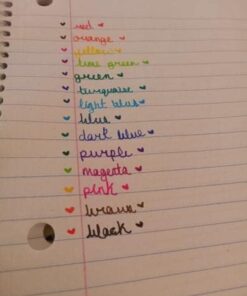 ♥ red ♥
♥ orange ♥
♥ yellow ♥
♥ lime green ♥
♥ green ♥
♥ turquoise ♥
♥ light blue ♥
♥ blue ♥
♥ dark blue ♥
♥ purple ♥
♥ magenta ♥
♥ pink ♥
♥ brown ♥
♥ black ♥